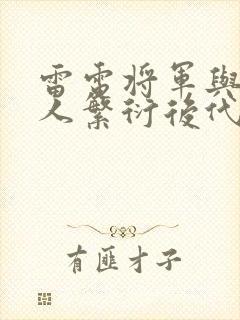 雷雷将軍與
人繁衍後代
有匪才子